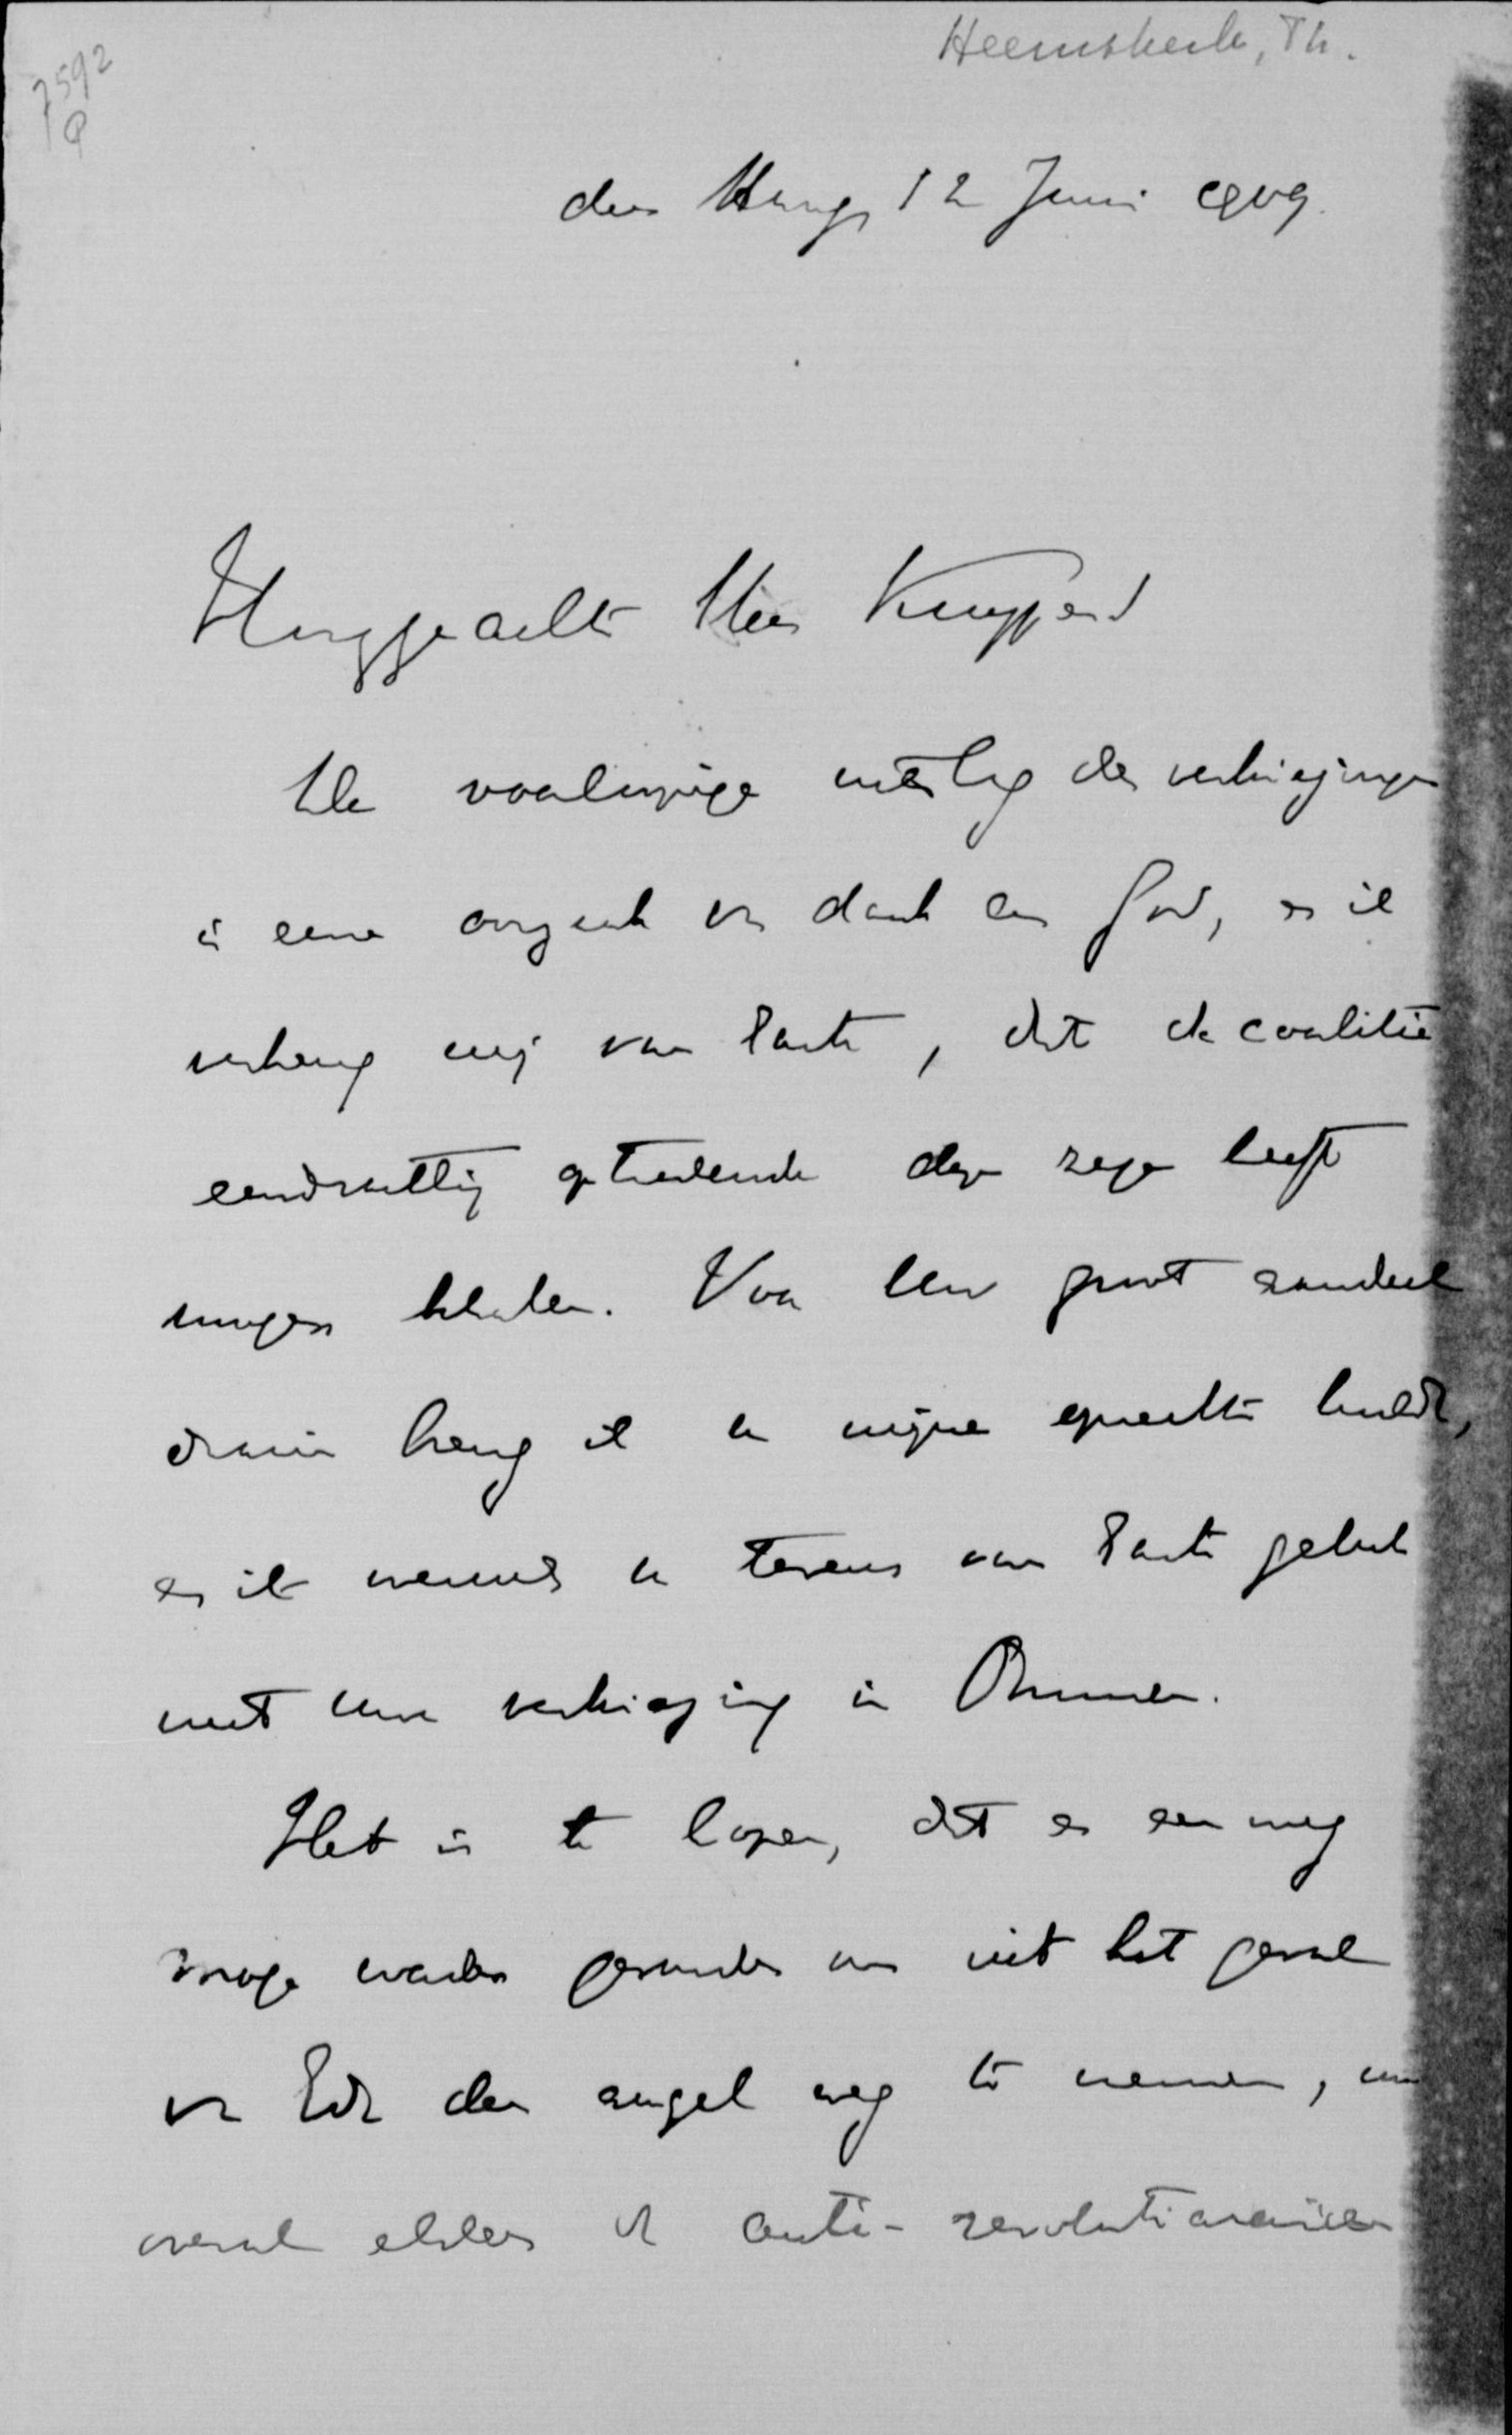 Heemskerk, Th.
7592
den Haag 12 Juni 1909.
Hooggeachte Heer Kuyper
De voorloopige uitslag der verkiezingen
is eene oorzaak van dank aan God, en ik
verheug mij van harte, dat de coalitie
eendrachtig optredende deze zege heeft
mogen behalen. Voor Uw groot aandeel
daarin breng ik u mijne oprechte hulde,
en ik wensch u tevens van harte geluk
met Uwe verkiezing in Ommen.
Het is te hopen, dat er een weg
moge worden gevonden om uit het geval
van Ede den angel weg te nemen, nu
overal elders de anti-revolutionairen